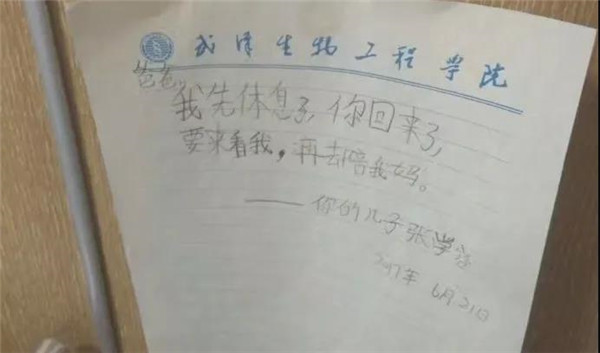 武汉生物工程学院
爸爸,
我先休息了,你回来了,
要来看我,再去陪我妈。
——你的儿子张学
年 6月21日